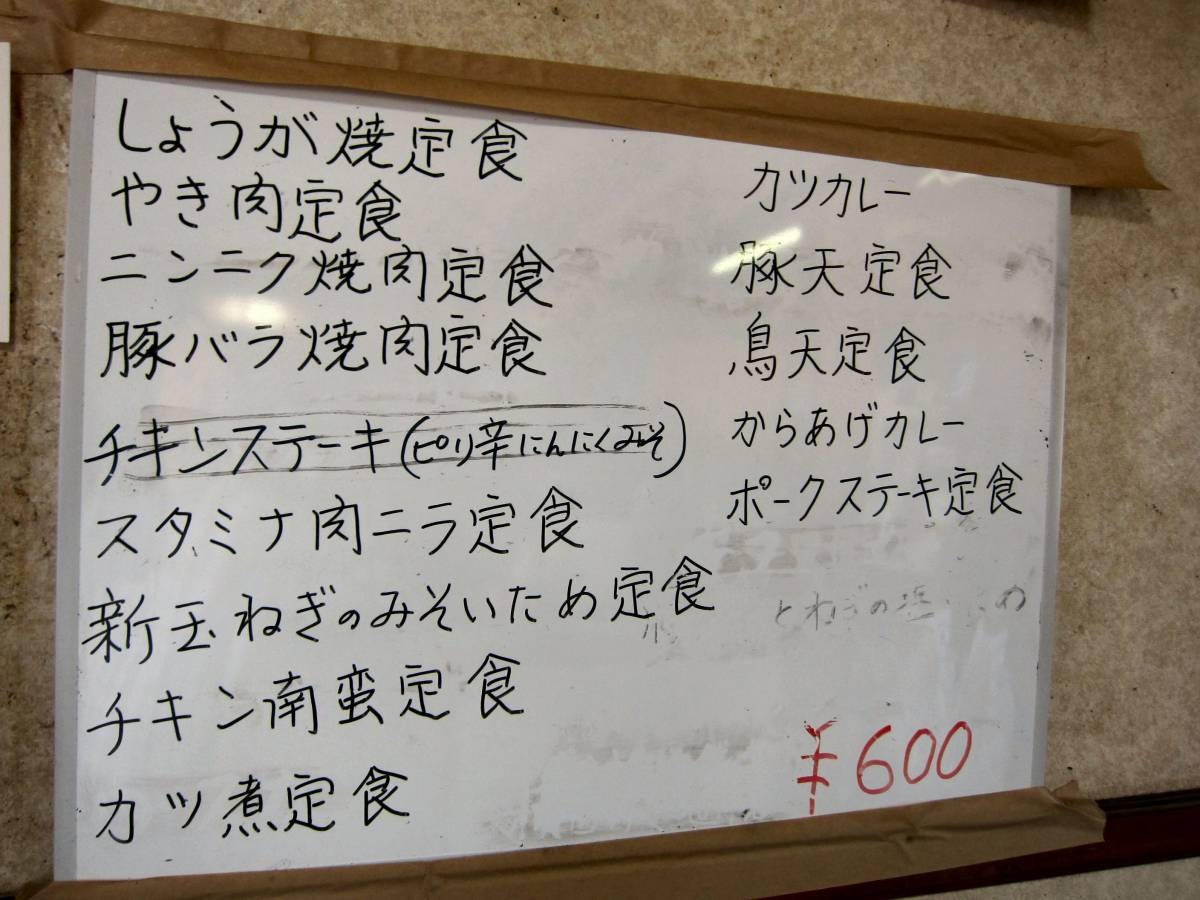 しょうが焼定食
やき肉定食
ニンニク焼肉定食
豚バラ焼肉定食
チキンステーキ(ピリ辛にんにくみそ)
スタミナ肉ニラ定食
新玉ねぎのみそいため定食
チキン南蛮定食
カツ煮定食
カツカレー
豚天定食
鳥天定食
からあげカレー
ポークステーキ定食
とねぎの塩
¥600